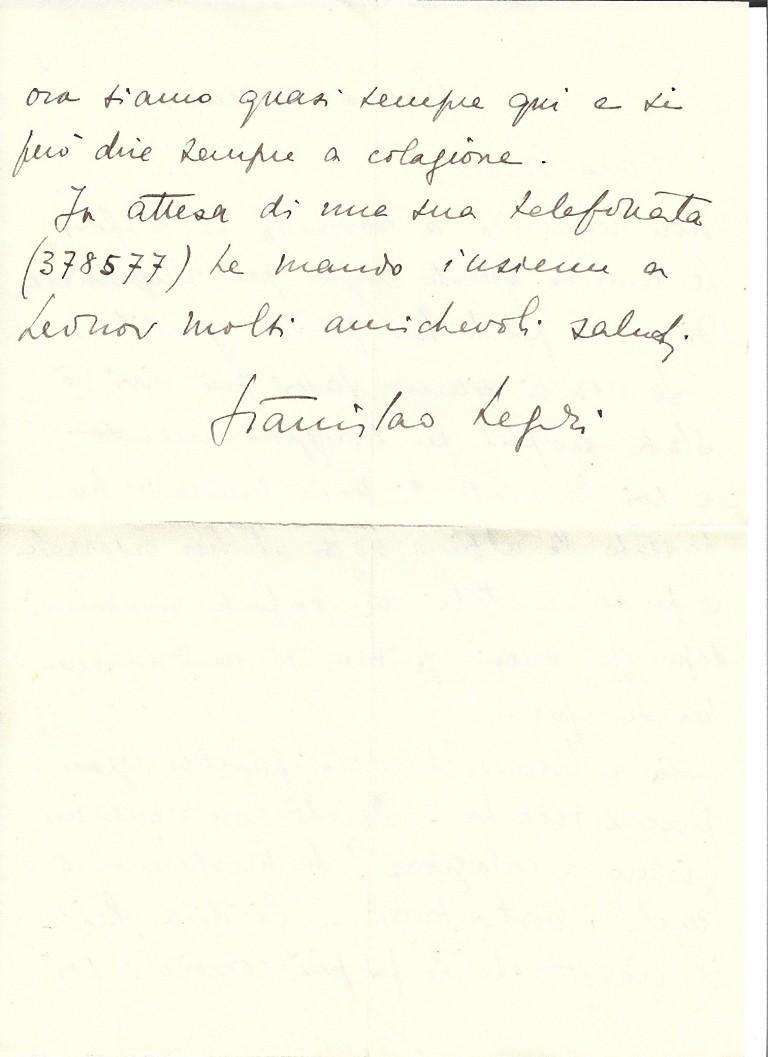 ora siamo quasi sempre qui e si
può dire sempre a colagione.
In attesa di una sua telefonata
(378577) Le mando insieme a
Leonor molti amichevoli saluti.
Stanislao Lepri